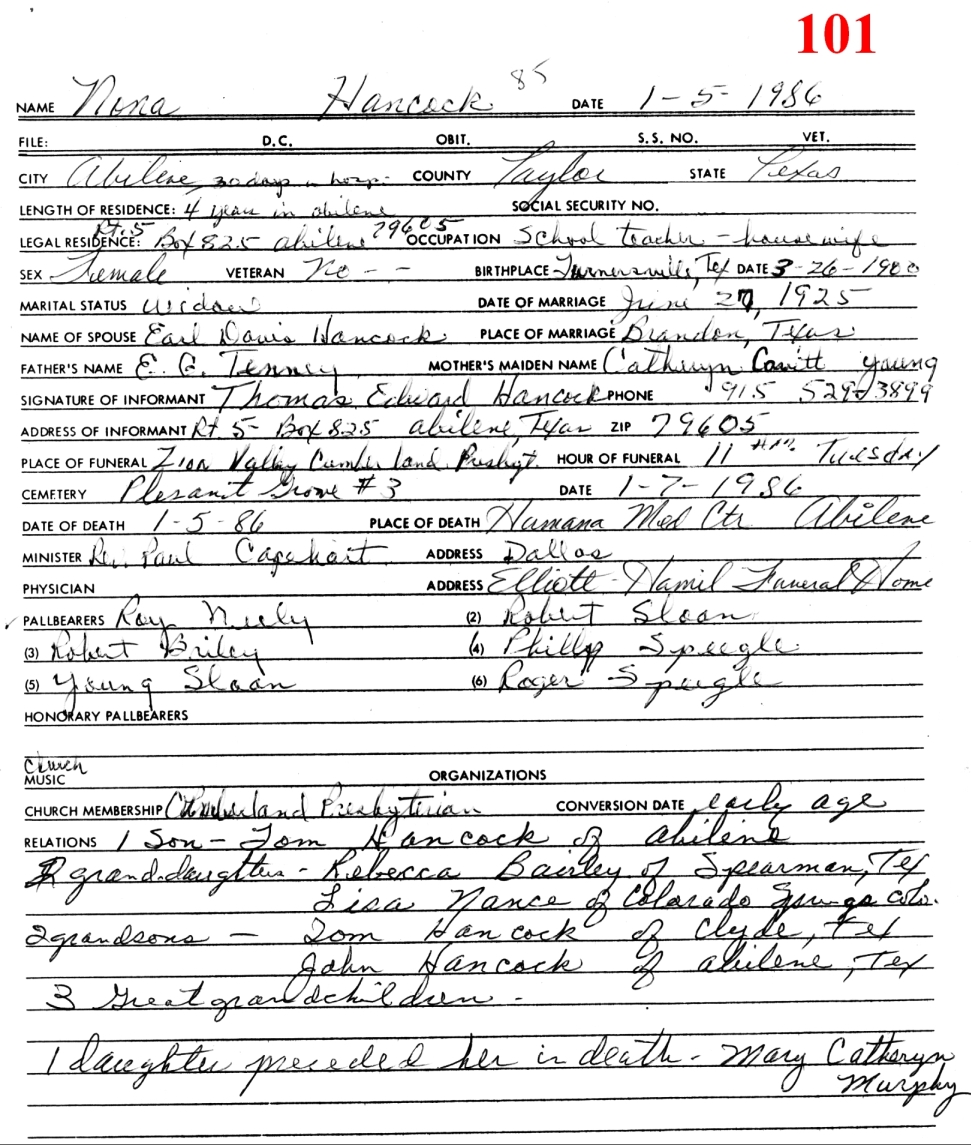 101
NAME Nona Hancock 85 DATE 1-5-1986
FILE: D.C. OBIT. S.S. NO. VET.
CITY Abilene, 30 days in hosp. COUNTY Taylor STATE Texas
LENGTH OF RESIDENCE: 4 years in abilene SOCIAL SECURITY NO.
LEGAL RESIDENCE: Rt. 5 Box 825 abilene 79605 OCCUPATION School teacher - housewife
SEX Female VETERAN No - - BIRTHPLACE Turnersville, Tex DATE 3-26-1900
MARITAL STATUS widow DATE OF MARRIAGE June 27, 1925
NAME OF SPOUSE Earl Davis Hancock PLACE OF MARRIAGE Brandon, Texas
FATHER'S NAME E. G. Tenney MOTHER'S MAIDEN NAME Catheryn Cavitt Young
SIGNATURE OF INFORMANT Thomas Edward Hancock PHONE 915 529-3899
ADDRESS OF INFORMANT Rt 5- Box 825 abilene, Texas ZIP 79605
PLACE OF FUNERAL Zion Valley Cumberland Presbyt. HOUR OF FUNERAL 11 A.M. Tuesday
CEMETERY Plesant Grove #3 DATE 1-7-1986
DATE OF DEATH 1-5-86 PLACE OF DEATH Humana Med Ctr Abilene
MINISTER Rev. Paul Capehart ADDRESS Dallas
PHYSICIAN ADDRESS Elliott-Hamil Funeral Home
PALLBEARERS Roy Neely (2) Robert Sloan
(3) Robert Briley (4) Phillip Speegle
(5) Young Sloan (6) Roger Speegle
HONORARY PALLBEARERS
Church
MUSIC ORGANIZATIONS
CHURCH MEMBERSHIP Cumberland Presbyterian CONVERSION DATE early age
RELATIONS 1 Son - Tom Hancock of abilene
2 grand-daughters - Rebecca Bairley of Spearman, Tex
Lisa Nance of Colorado Springs Colo.
2 grandsons - Tom Hancock of Clyde, Tex
John Hancock of abilene, Tex
3 Great grandchildren -
1 daughter preceded her in death - Mary Catheryn
Murphy